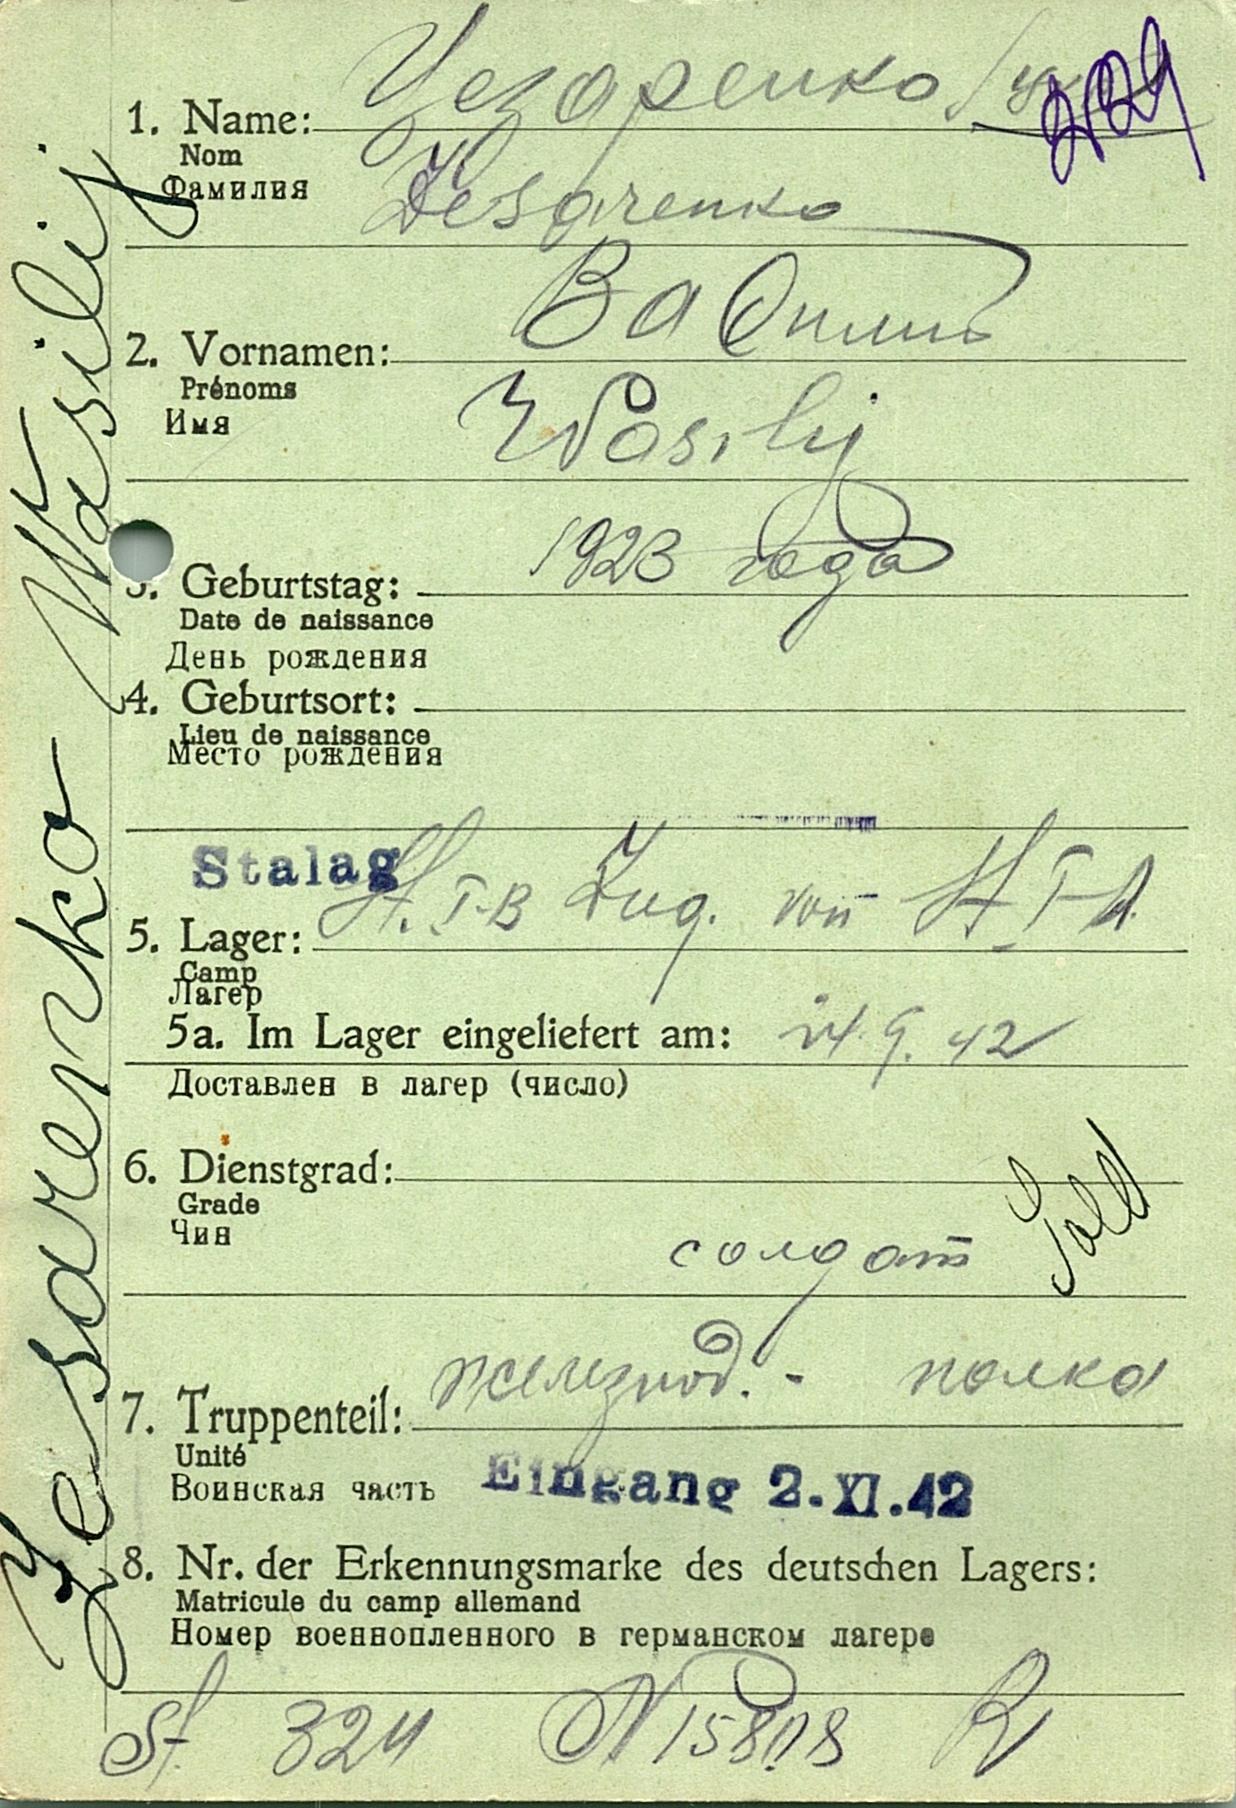 Чезаренко
1. Name:
Nom
Фамилия
Zesarenko
Василий
2. Vornamen:
Prénoms
Имя
Wasilij
1923 года
3. Geburtstag:
Date de naissance
День рождения
4. Geburtsort:
Lieu de naissance
Место рождения
Stalag
St. I-B Zug. von St. I-A
5. Lager:
Camp
Лагерь
5a. Im Lager eingeliefert am: 24.9.42
Доставлен в лагер (число)
6. Dienstgrad:
Grade
Чин
солдат Sold
железнод. - полка
7. Truppenteil:
Unité
Воинская часть
Eingang 2.XI.42
8. Nr. der Erkennungsmarke des deutschen Lagers:
Matricule du camp allemand
Номер военнопленного в германском лагере
St 324 N 15808 R
Zesarenko Wasilij